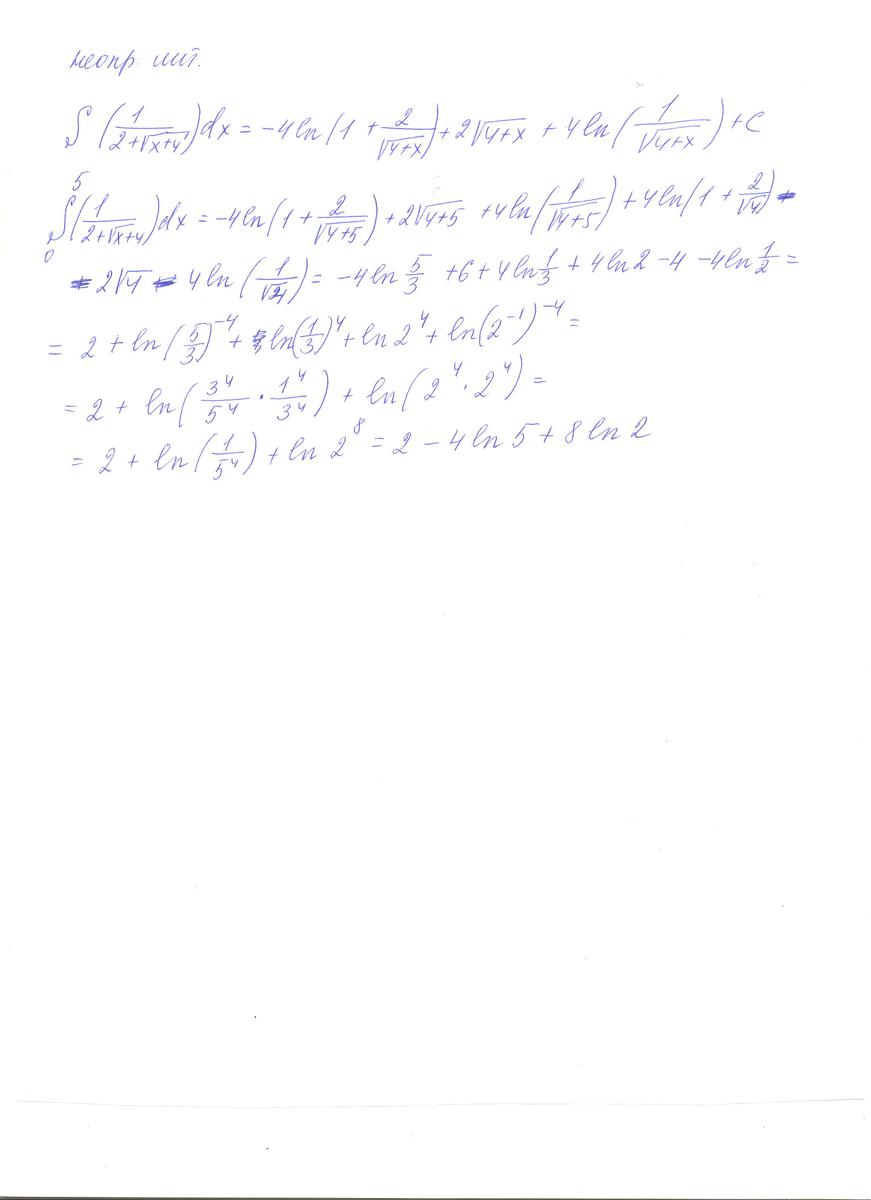 неопр. инт.
∫ (1/(2+√(x+4))) dx = -4 ln (1 + 2/√(4+x)) + 2√(4+x) + 4 ln (1/√(4+x)) + C
∫₀⁵ (1/(2+√(x+4))) dx = -4 ln (1 + 2/√(4+5)) + 2√(4+5) + 4 ln (1/√(4+5)) + 4 ln (1 + 2/√4) -
- 2√4 - 4 ln (1/√4) = -4 ln 5/3 + 6 + 4 ln 1/3 + 4 ln 2 - 4 - 4 ln 1/2 =
= 2 + ln (5/3)⁻⁴ + ln (1/3)⁴ + ln 2⁴ + ln (2⁻¹)⁻⁴ =
= 2 + ln (3⁴/5⁴ · 1⁴/3⁴) + ln (2⁴ · 2⁴) =
= 2 + ln (1/5⁴) + ln 2⁸ = 2 - 4 ln 5 + 8 ln 2